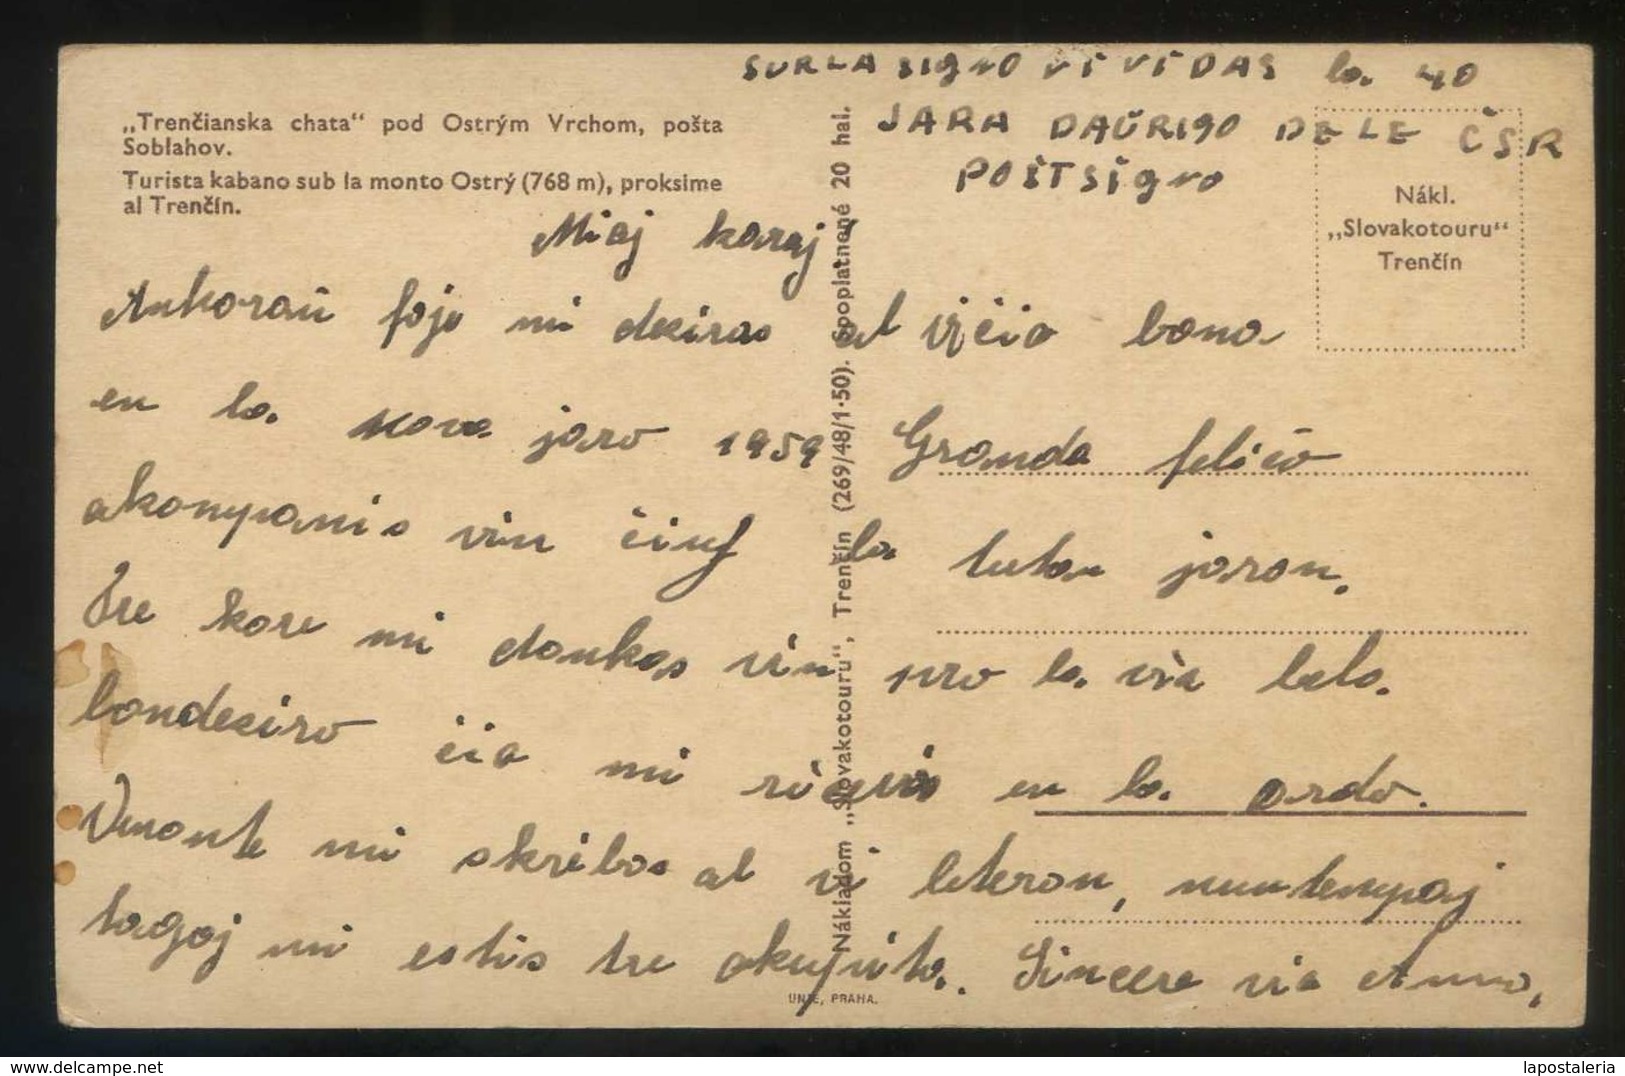 SUR LA SIGNO VI VIDAS la 40
JARA DAŬRIGO DE LE ČSR
POŜTSIGNO
„Trenčianska chata“ pod Ostrým Vrchom, pošta
Soblahov.
Turista kabano sub la monto Ostrý (768 m), proksime
al Trenčín.
Nákl.
„Slovakotouru“
Trenčín
Nákladom „Slovakotouru“, Trenčín (269/48/1·50). Spoplatnené 20 hal.
Miaj karaj
Ankoraŭ foje mi deziras al vi ĉio bona
en la nova jaro 1959 Granda feliĉo
akompanis vin ĉiuj la tutan jaron.
Tre kore mi dankas vin pro la via bela
bondeziro ĉia mi ricevis en la ordo.
Vinonte mi skribos al vi leteron, nuntempaj
tagoj mi estis tre okupita. Sincere via Anna,
UNIE, PRAHA.
lapostaleria
www.delcampe.net